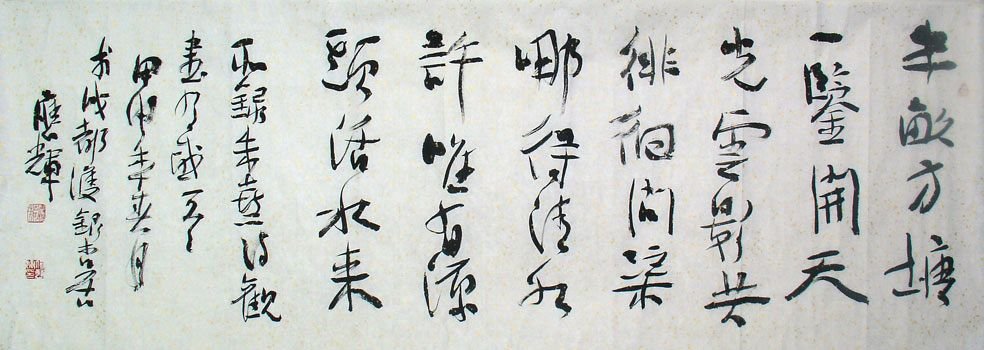 半畝方塘
一鑒開天
光雲影共
徘徊問渠
哪得清如
許唯有源
頭活水来
錄朱熹詩觀
書有感
甲申年春月
於成都
應輝